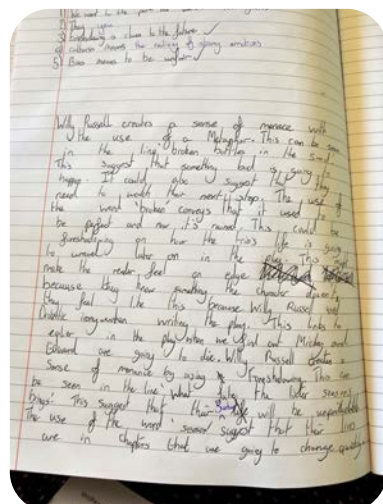 1) We went to the park
2) They you
3) Foreshadowing is clues to the future ✓
4) catharsis means the realising of strong emotions
5) Bias means to be unfair ✓
Willy Russell creates a sense of menace with
the use of a Metaphor. This can be seen
in the line 'broken bottles in the sand'.
This suggest that something bad is going to
happen. It could also suggest that they
need to watch their next step. The use of
the word 'broken' conveys that it used to
be perfect and now it's ruined. This could be
foreshadowing on how the trio's life is going
to unravel later on in the play. This might
make the reader feel on edge
because they know something the character doesn't,
they feel like this because Willy Russel used
Dramatic irony when writing the play. This links to
earlier in the play when we find out Mickey and
Edward are going to die. Willy Russell creates a
Sense of menace by using Foreshadowing. This can
be seen in the line 'what the later season
brings'. This suggest that their life will be unpredictable
The use of the word 'season' suggest that their lives
are in chapters that are going to change quickly